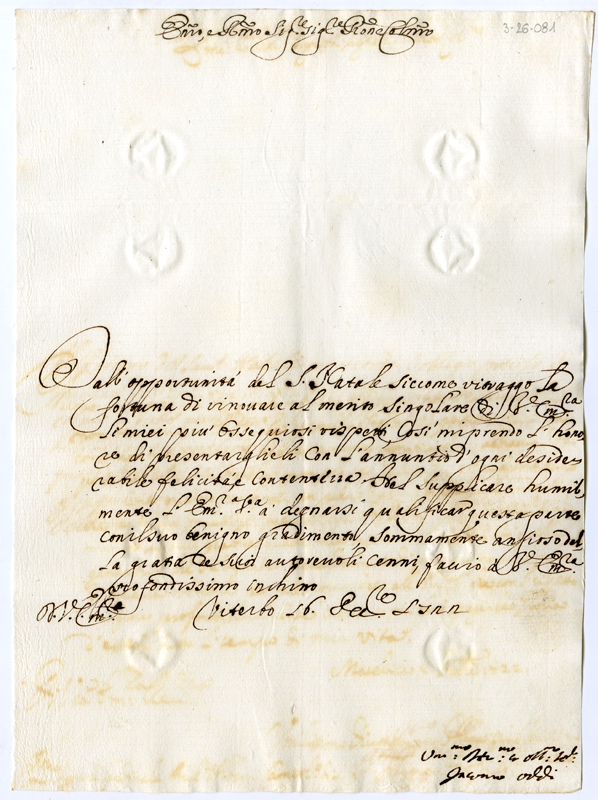 Em̃o, e R̃mo Sig.re Sig.re P̃rone Col̃mo
3-26-081
Dall' opportunità del S. Natale siccome ritraggo la
fortuna di rinovare al merito singolare di V.ra Em.za
li miei più ossequiosi rispetti così mi prendo l'hono-
re di presentarglieli con l'annuntio d'ogni deside-
rabile felicità, e contentezza. Nel supplicare humil-
mente l'Em.za V.ra à degnarsi qualificar questa parte
con il suo benigno gradimento, sommamente ansioso del-
la gratia de suoi autorevoli cenni, faccio a V.ra Em.za
profondissimo inchino
D. V. Em.za Viterbo 16. Dec.re 1722
Um.mo Dev.mo et Obl.mo Se.re
Jacomo Oddi